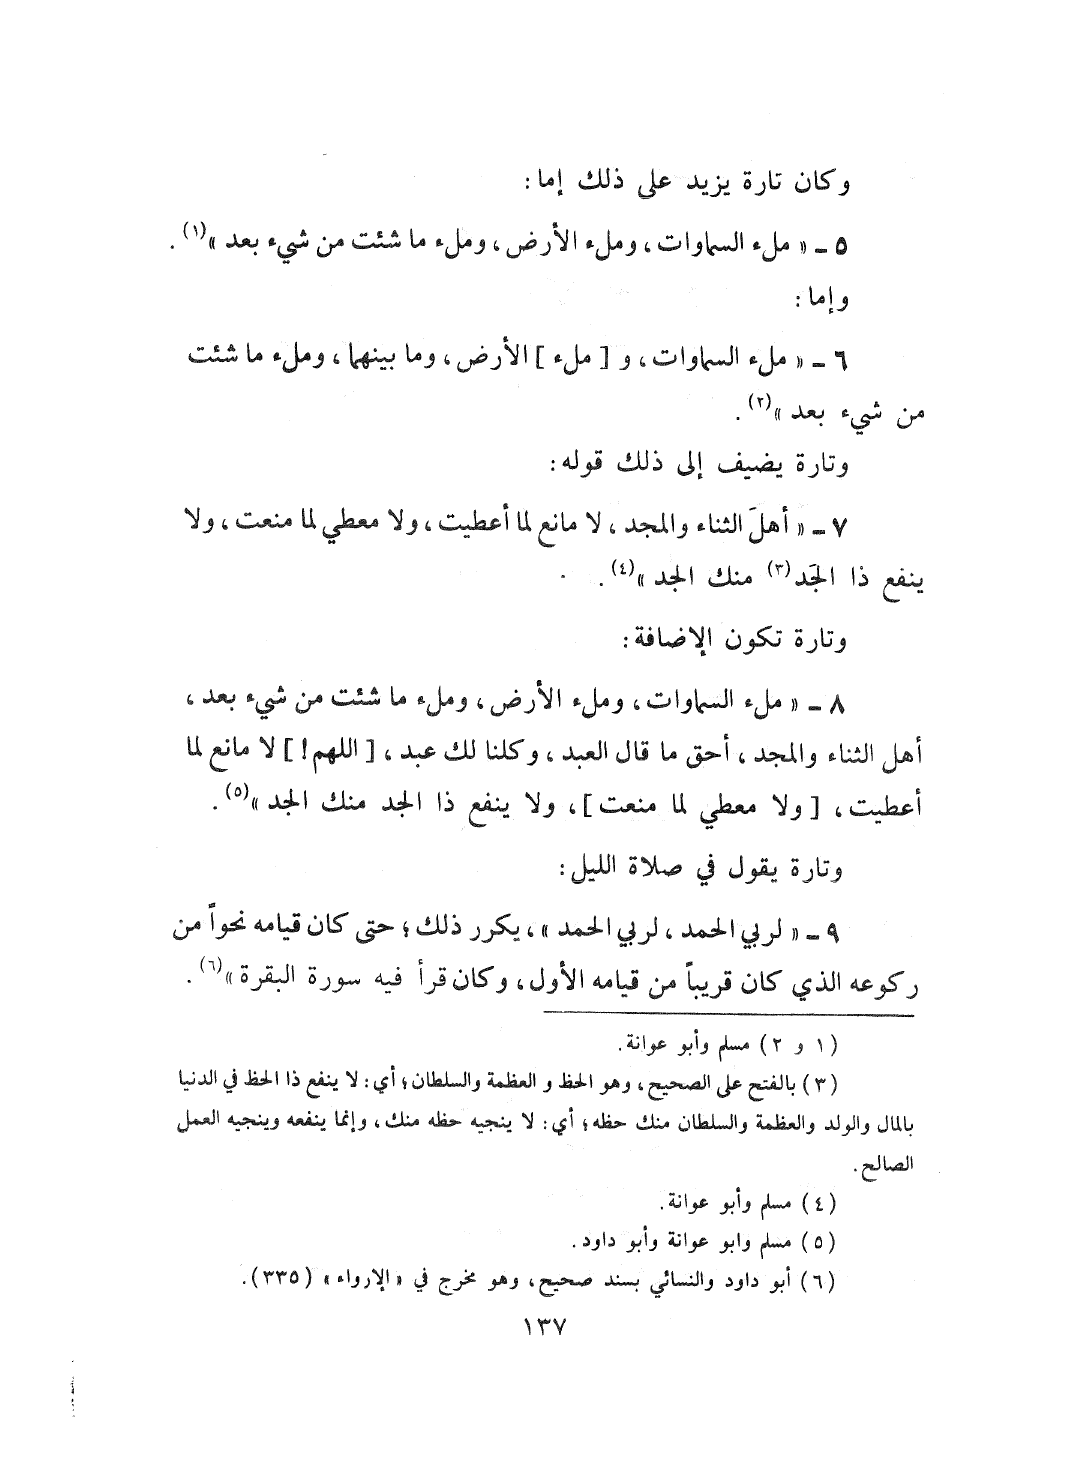 وكان تارة يزيد على ذلك إما:
٥ ـ « ملء السماوات، وملء الأرض، وملء ما شئت من شيء بعد »(١).
وإما:
٦ ـ « ملء السماوات، و [ ملء ] الأرض، وما بينهما، وملء ما شئت
من شيء بعد »(٢).
وتارة يضيف إلى ذلك قوله:
٧ ـ « أهلَ الثناء والمجد، لا مانع لما أعطيت، ولا معطي لما منعت، ولا
ينفع ذا الجَد(٣) منك الجد »(٤).
وتارة تكون الإضافة:
٨ ـ « ملء السماوات، وملء الأرض، وملء ما شئت من شيء بعد،
أهل الثناء والمجد، أحق ما قال العبد، وكلنا لك عبد، [ اللهم! ] لا مانع لما
أعطيت، [ ولا معطي لما منعت ]، ولا ينفع ذا الجد منك الجد »(٥).
وتارة يقول في صلاة الليل:
٩ ـ « لربي الحمد، لربي الحمد »، يكرر ذلك؛ حتى كان قيامه نحواً من
ركوعه الذي كان قريباً من قيامه الأول، وكان قرأ فيه سورة البقرة »(٦).
(١ و ٢) مسلم وأبو عوانة.
(٣) بالفتح على الصحيح، وهو الحظ و العظمة والسلطان؛ أي: لا ينفع ذا الحظ في الدنيا
بالمال والولد والعظمة والسلطان منك حظه؛ أي: لا ينجيه حظه منك، وإنما ينفعه وينجيه العمل
الصالح.
(٤) مسلم وأبو عوانة.
(٥) مسلم وابو عوانة وأبو داود.
(٦) أبو داود والنسائي بسند صحيح، وهو مخرج في « الإرواء » (٣٣٥).
١٣٧